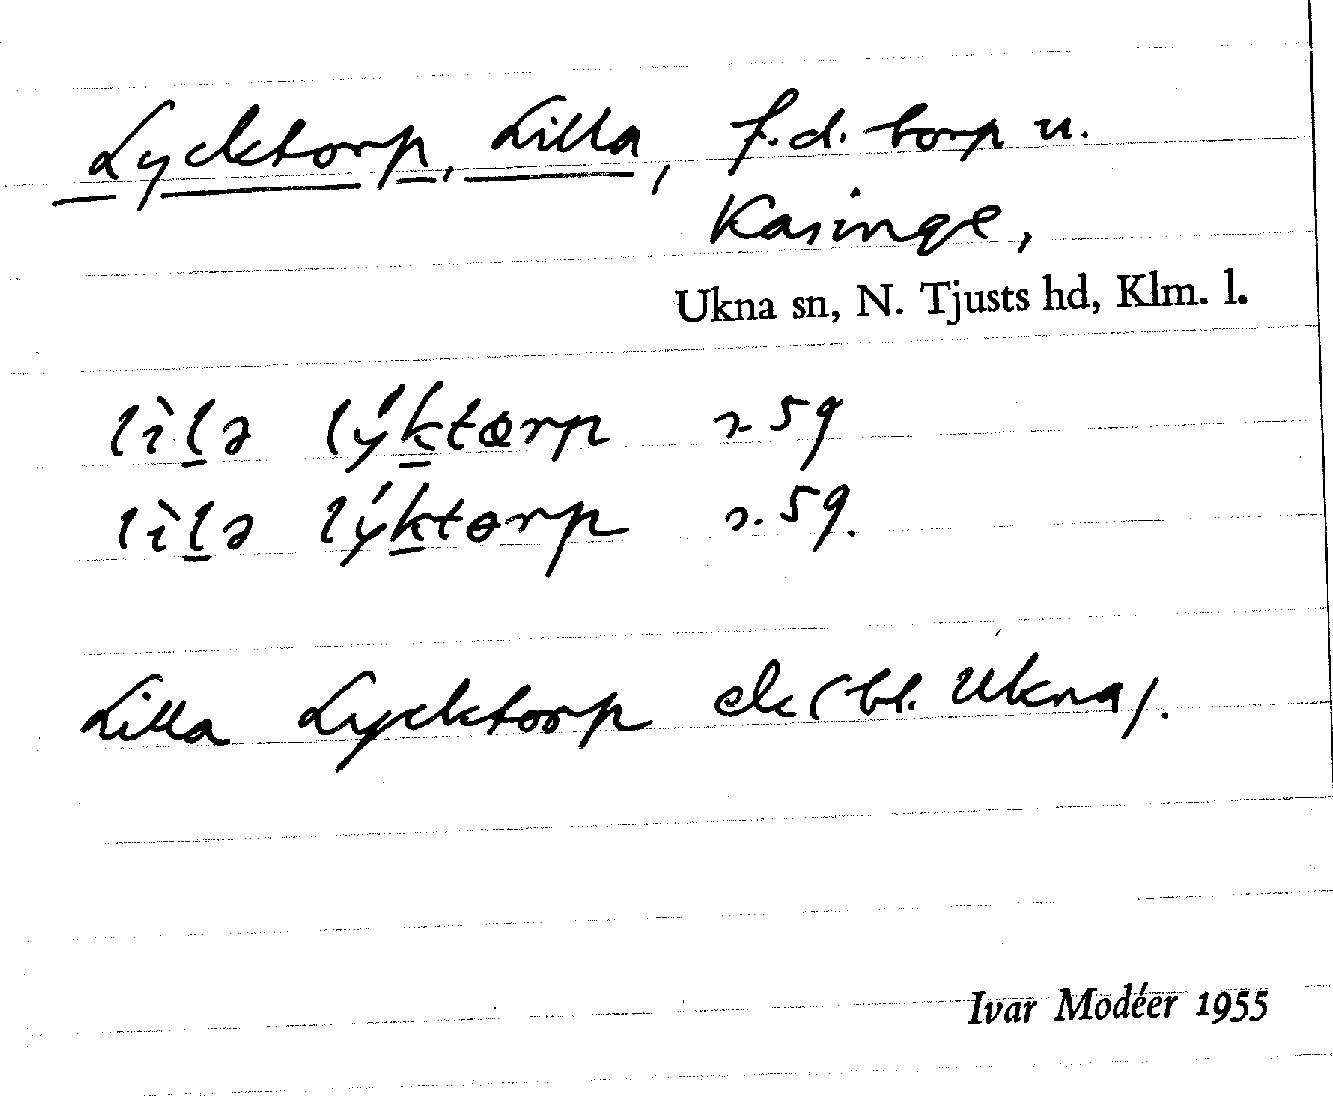 Lycktorp, Lilla, f.d. torp u.
Kasinge,
Ukna sn, N. Tjusts hd, Klm. l.
lìlə lýktɵrp 259
lìlə lýktɵrp 2.59.
Lilla Lycktorp ek (bl. Ukna).
Ivar Modéer 1955